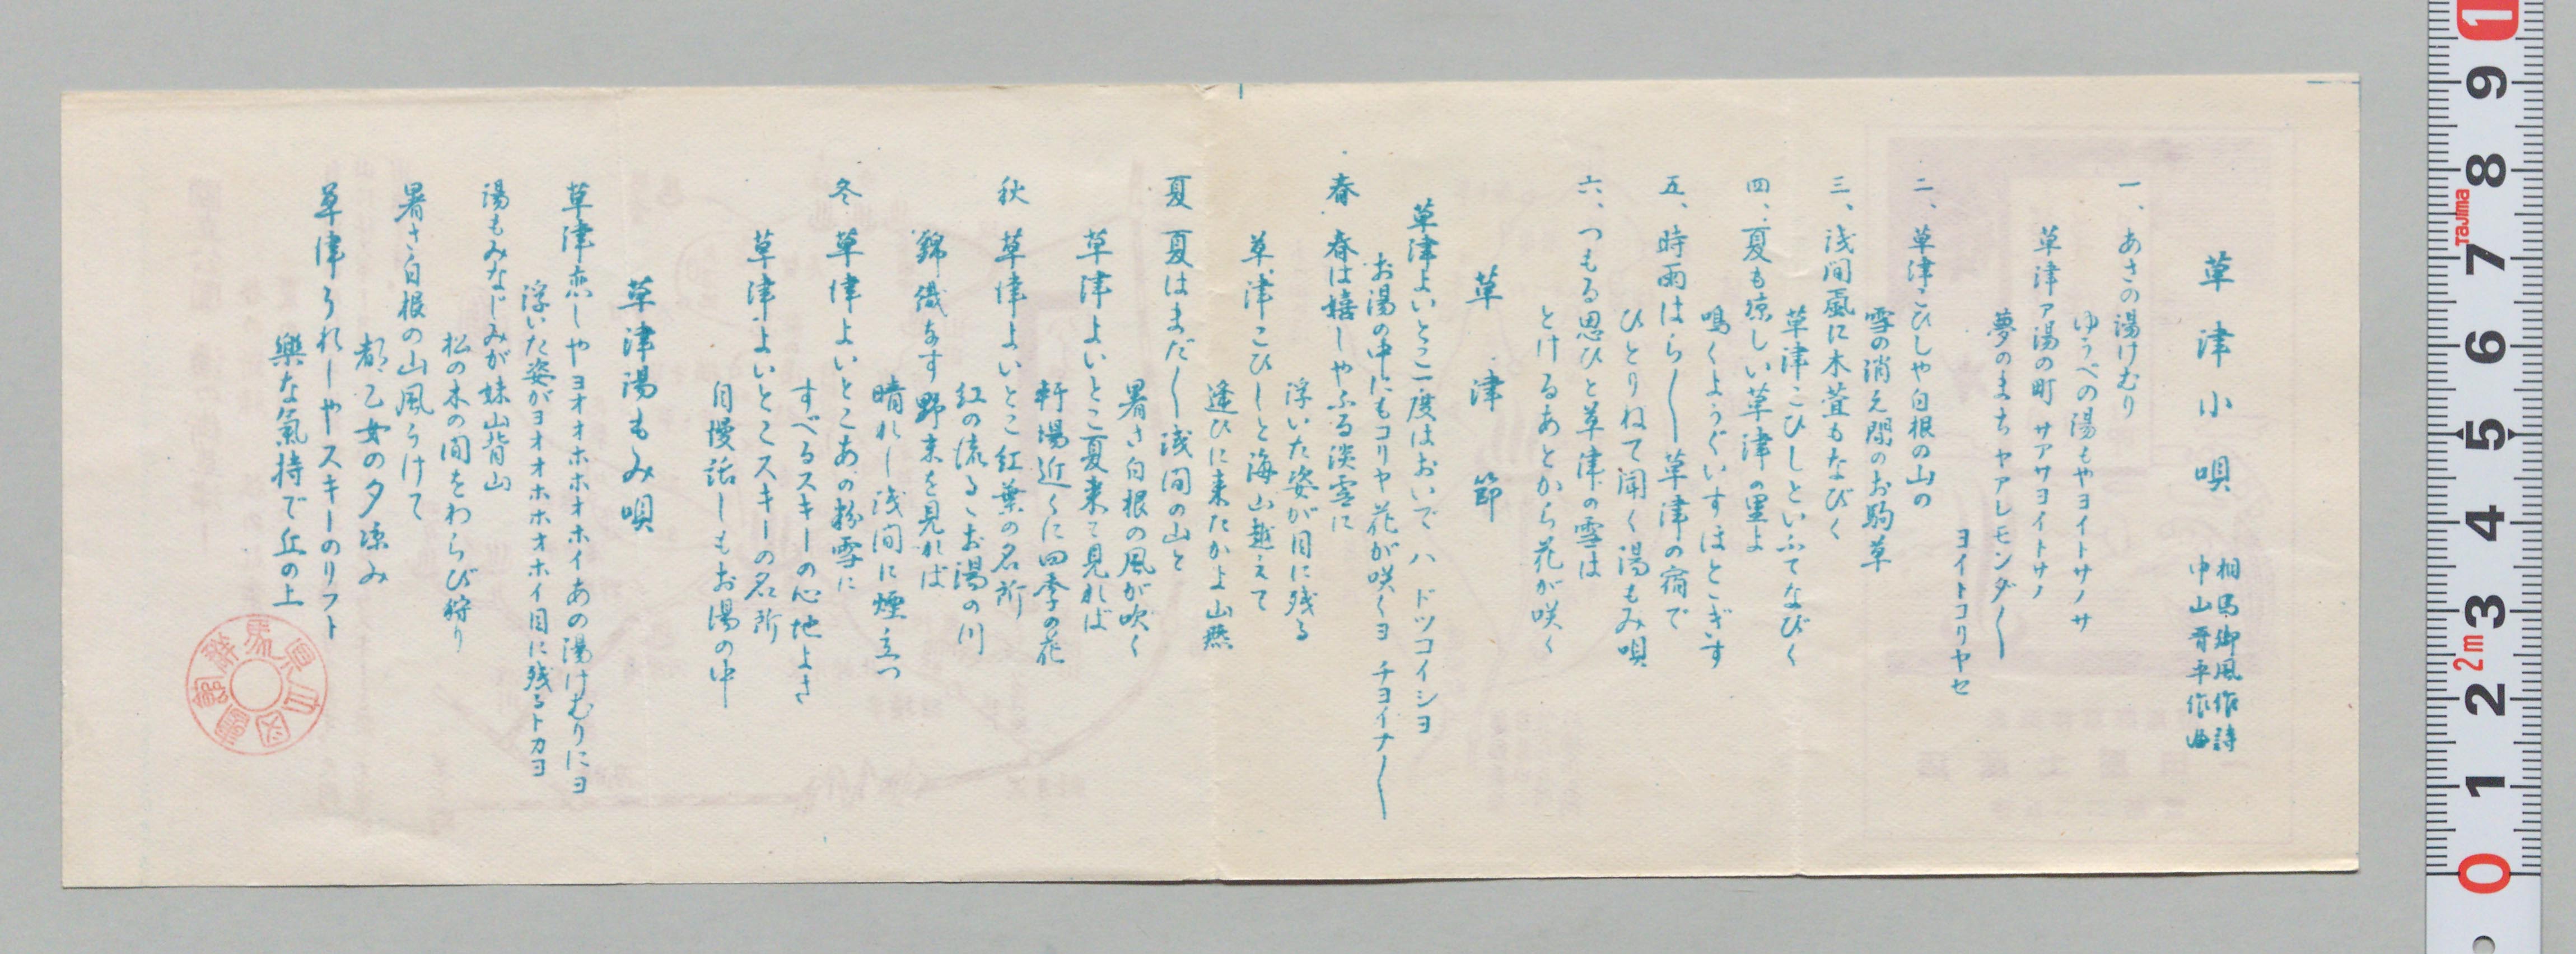 草津小唄
相馬御風作詩
中山晋平作曲
一、あさの湯けむり
ゆうべの湯もやヨイトサノサ
草津ァ湯の町サアサヨイトサノ
夢のまちヤアレモンダ〱
ヨイトコリヤセ
二、草津こひしや白根の山の
雪の消え間のお駒草
三、浅間颪に木萱もなびく
草津こひしといふてなびく
四、夏も凉しい草津の里よ
鳴くようぐいすほとゝぎす
五、時雨はら〱草津の宿で
ひとりねて聞く湯もみ唄
六、つもる思ひと草津の雪は
とけるあとから花が咲く
草津節
草津よいとこ一度はおいで ハ ドツコイシヨ
お湯の中にもコリヤ花が咲くヨ チヨイナ〱
春 春は嬉しやふる淡雪に
浮いた姿が目に残る
草津こひしと海山越えて
逢ひに来たかよ山燕
夏 夏はまだ〱浅間の山と
暑さ白根の風が吹く
草津よいとこ夏来て見れば
軒場近くに四季の花
秋 草津よいとこ紅葉の名所
紅の流るゝお湯の川
錦織なす野末を見れば
晴れし浅間に煙立つ
冬 草津よいとこあの粉雪に
すべるスキーの心地よさ
草津よいとこスキーの名所
自慢話しもお湯の中
草津湯もみ唄
草津恋しやヨオオホホオホイあの湯けむりにヨ
浮いた姿がヨオオホホオホイ目に残るトカヨ
湯もみなじみが妹山背山
松の木の間をわらび狩り
暑さ白根の山風うけて
都乙女の夕凉み
草津うれしやスキーのリフト
樂な氣持で丘の上
群馬県立図書館
Tajima
2m
1
9
8
7
6
5
4
3
2
1
0